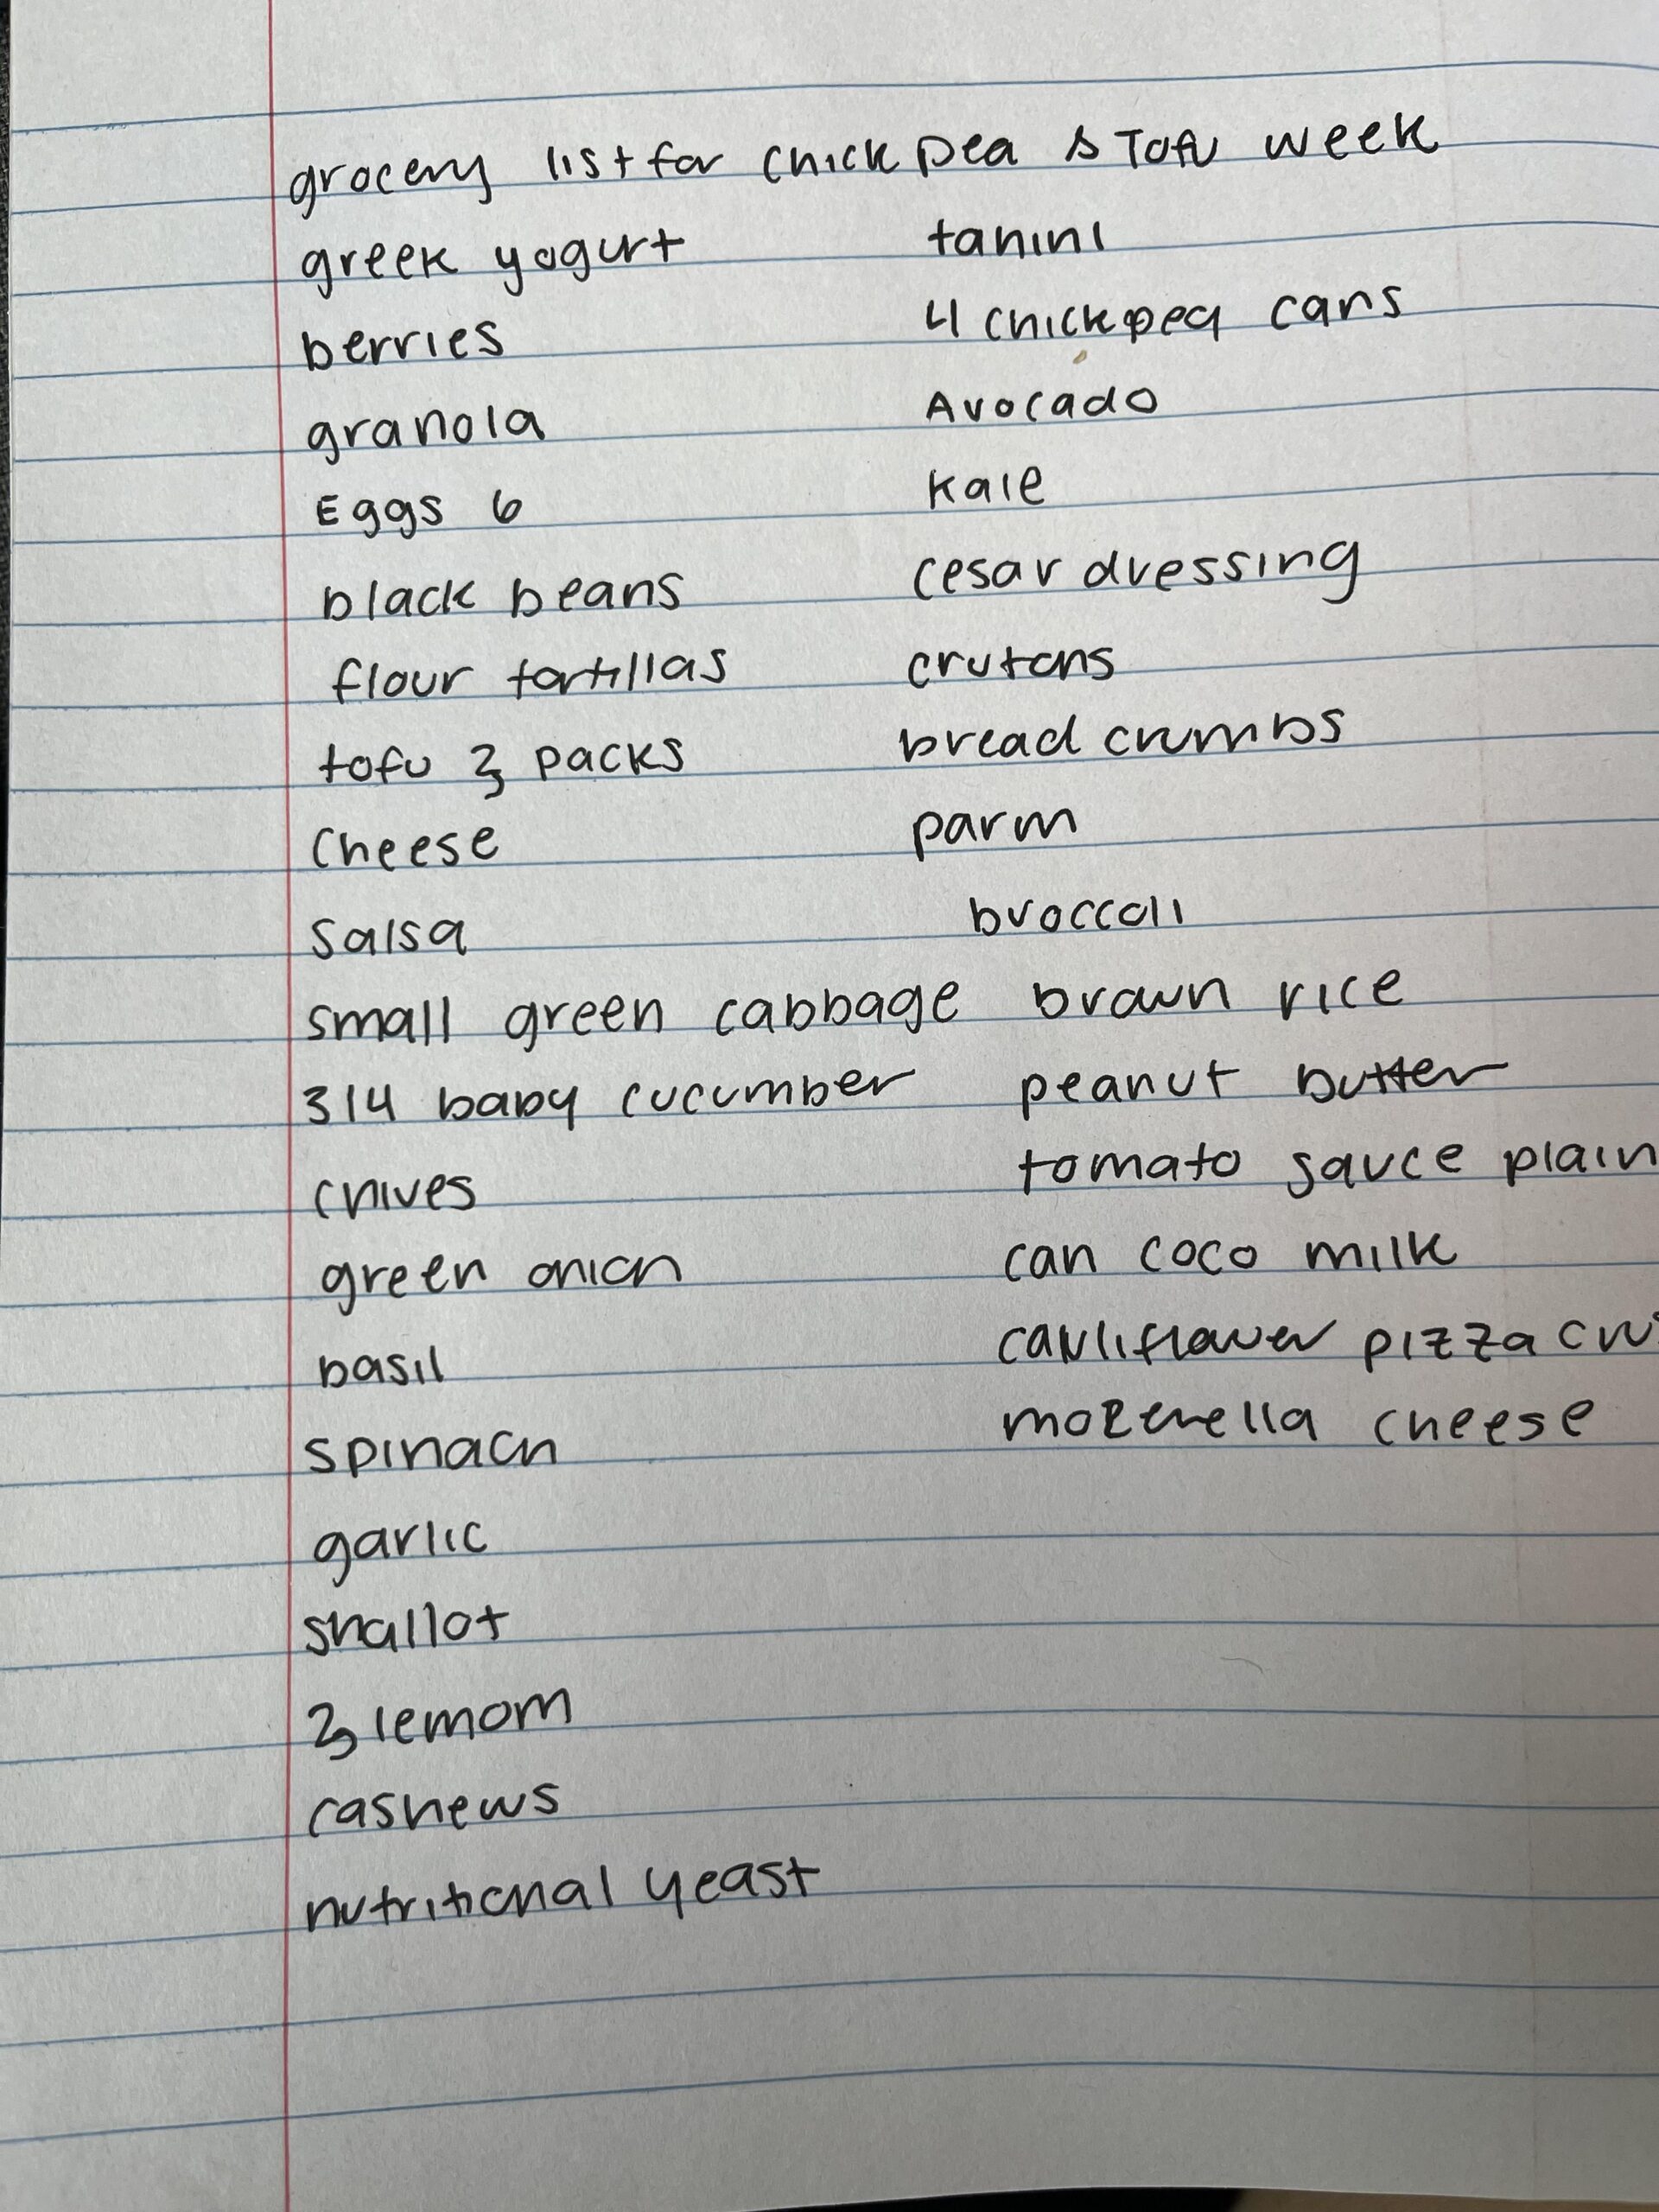 grocery list for chick pea & Tofu week
greek yogurt
berries
granola
Eggs 6
black beans
flour tortillas
tofu 3 packs
cheese
salsa
small green cabbage
3/4 baby cucumber
chives
green onion
basil
spinach
garlic
shallot
3 lemom
cashews
nutritional yeast
tahini
4 chickpea cans
Avocado
kale
cesar dressing
crutons
bread crumbs
parm
broccoli
brown rice
peanut butter
tomato sauce plain
can coco milk
cauliflower pizza
mozerella cheese